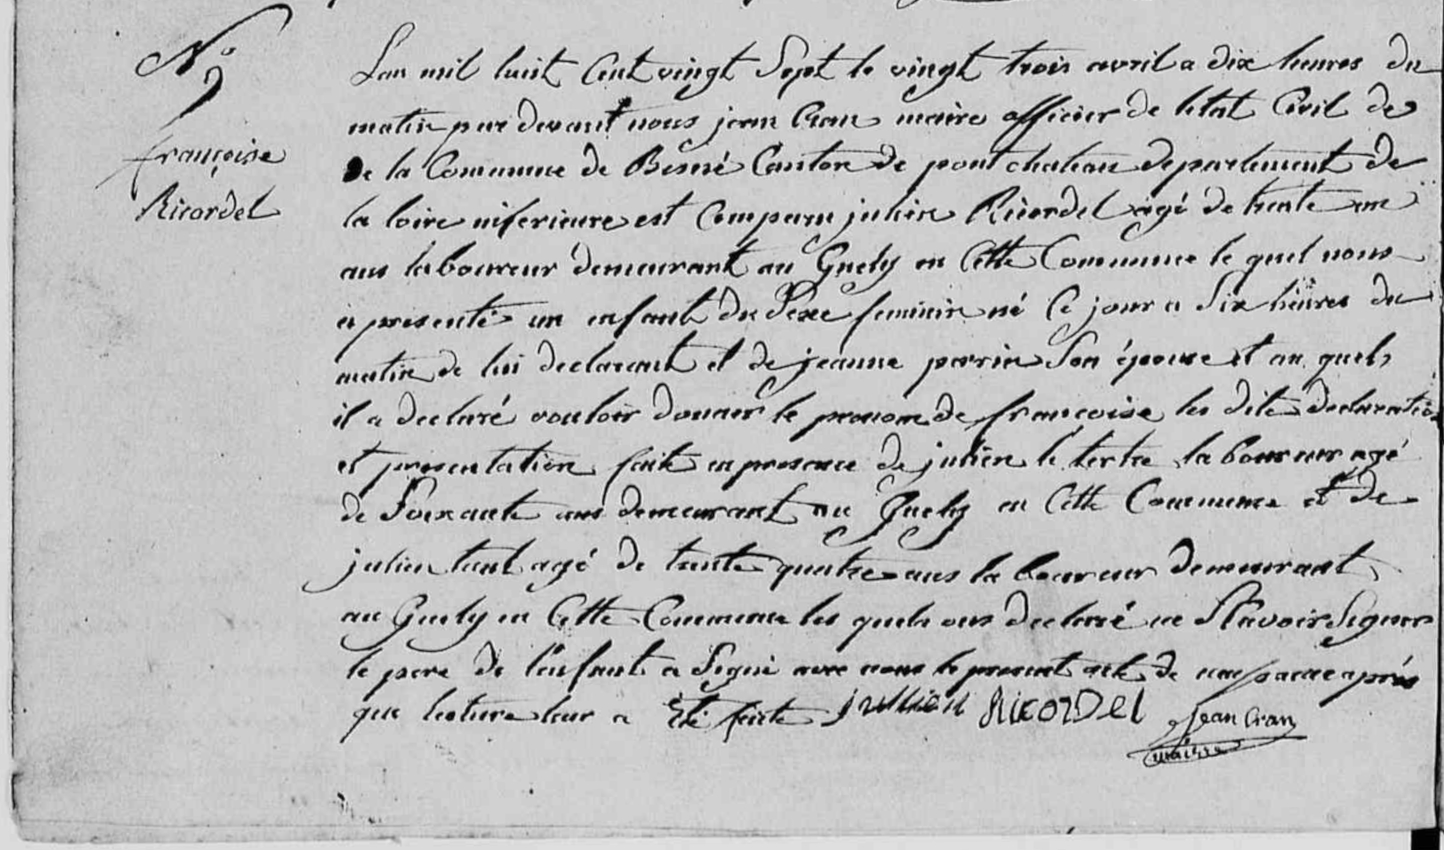 N° 9
françoise
Ricordel
Lan mil huit Cent vingt Sept le vingt trois avril a dix heures du
matin par devant nous jean Cran maire officier de letat Civil de
de la Commune de Besné Canton de pont chateau departement de
la loire inferieure est Comparu julien Ricordel agé de trente une
ans laboureur demeurant au Guely en Cette Commune le quel nous
a presenté un enfant du Sexe feminin né Ce jour a Six heures du
matin de lui declarant et de jeanne perrin Son épouse et au quel
il a declaré vouloir donner le prenom de françoise les dite declaration
et presentation faite en presence de julien le tertre laboureur agé
de Soixante ans demeurant au Guely en Cette Commune et de
julien tant agé de trante quatre ans laboureur demeurant
au Guely en Cette Commune les quels ons declaré ne Savoir Signer
le pere de l'enfant a Signé avec nous le present acte de naissance aprés
que lecture leur a Eté faite jullien RicorDel Jean Cran
maire